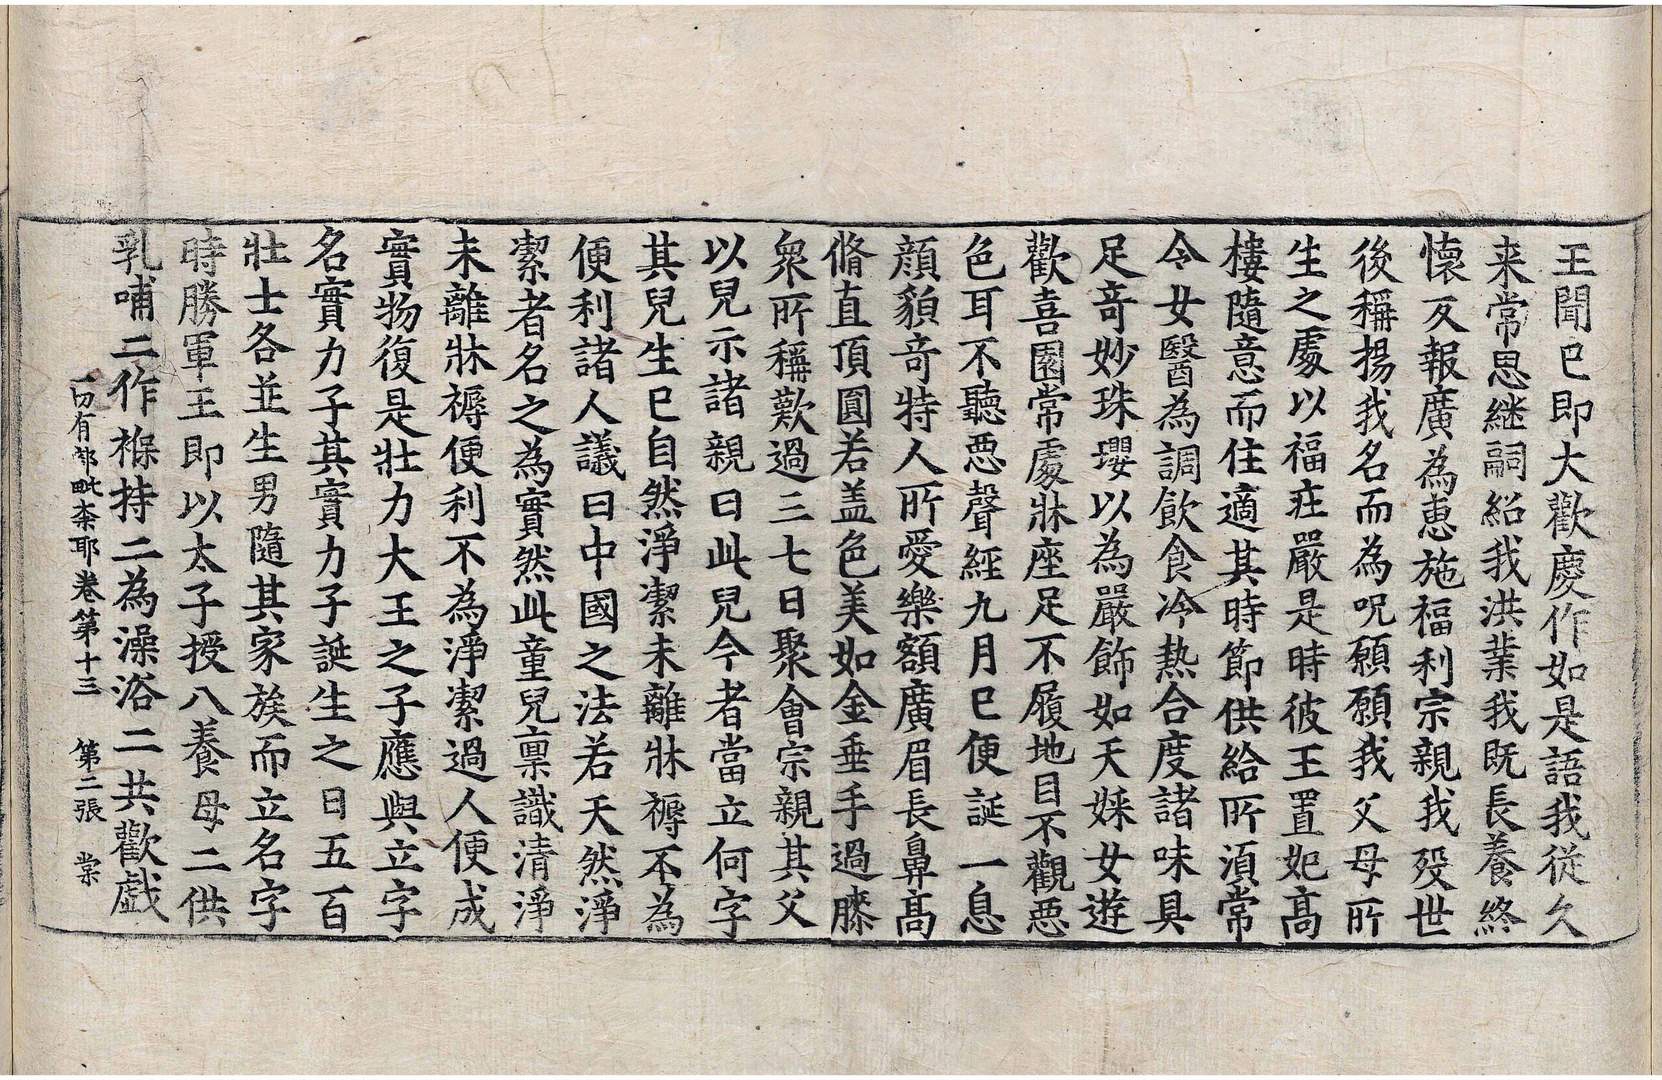 王聞已即大歡慶作如是語我従久
来常思継嗣紹我洪業我既長養終
懷反報廣為恵施福利宗親我殁世
後稱揚我名而為呪願願我父母所
生之處以福荘嚴是時彼王置妃高
樓隨意而住適其時節供給所湏常
令女醫為調飲食冷熱合度諸味具
足竒妙珠瓔以為嚴飾如天婇女遊
歡喜園常處牀座足不履地目不觀惡
色耳不聽惡聲經九月已便誕一息
顔貌竒特人所愛樂額廣眉長鼻高
脩直頂圓若盖色美如金垂手過膝
衆所稱歎過三七日聚會宗親其父
以兒示諸親曰此兒今者當立何字
其兒生已自然淨潔未離牀褥不為
便利諸人議曰中國之法若天然淨
潔者名之為實然此童兒禀識清淨
未離牀褥便利不為淨潔過人便成
實物復是壯力大王之子應與立字
名實力子其實力子誕生之日五百
壯士各並生男隨其家族而立名字
時勝軍王即以太子授八養母二供
乳哺二作褓持二為澡浴二共歡戯
一切有部毗柰耶卷第十三 第二張 棠